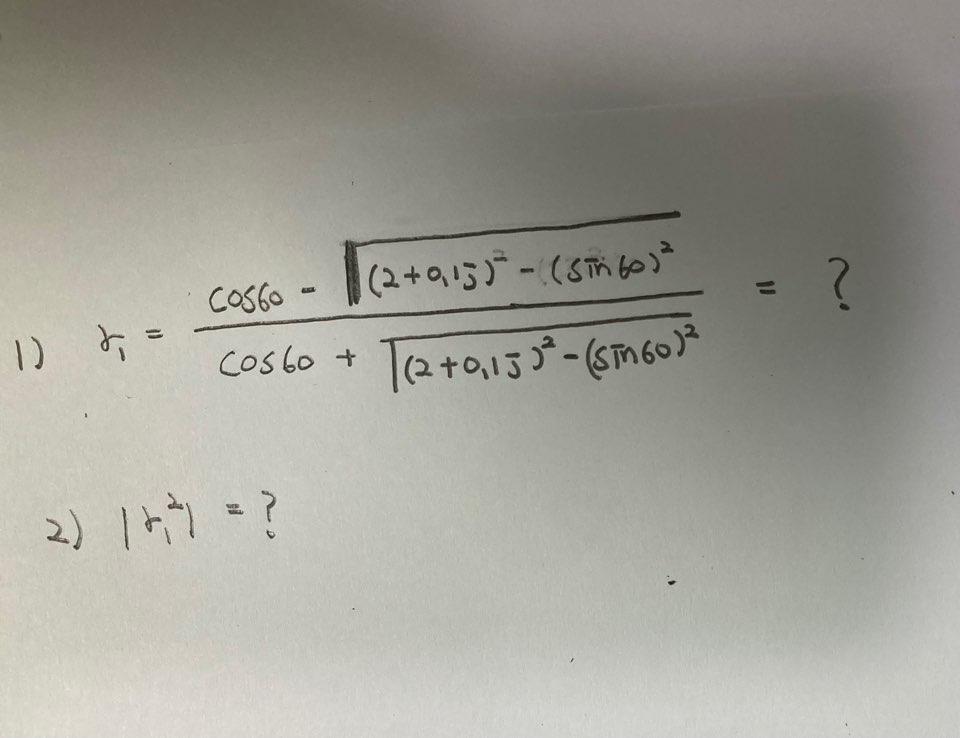 1) r₁ = (cos60 - √((2+0,1j)² - (sin60)²)) / (cos60 + √((2+0,1j)² - (sin60)²)) = ?
2) |r₁²| = ?